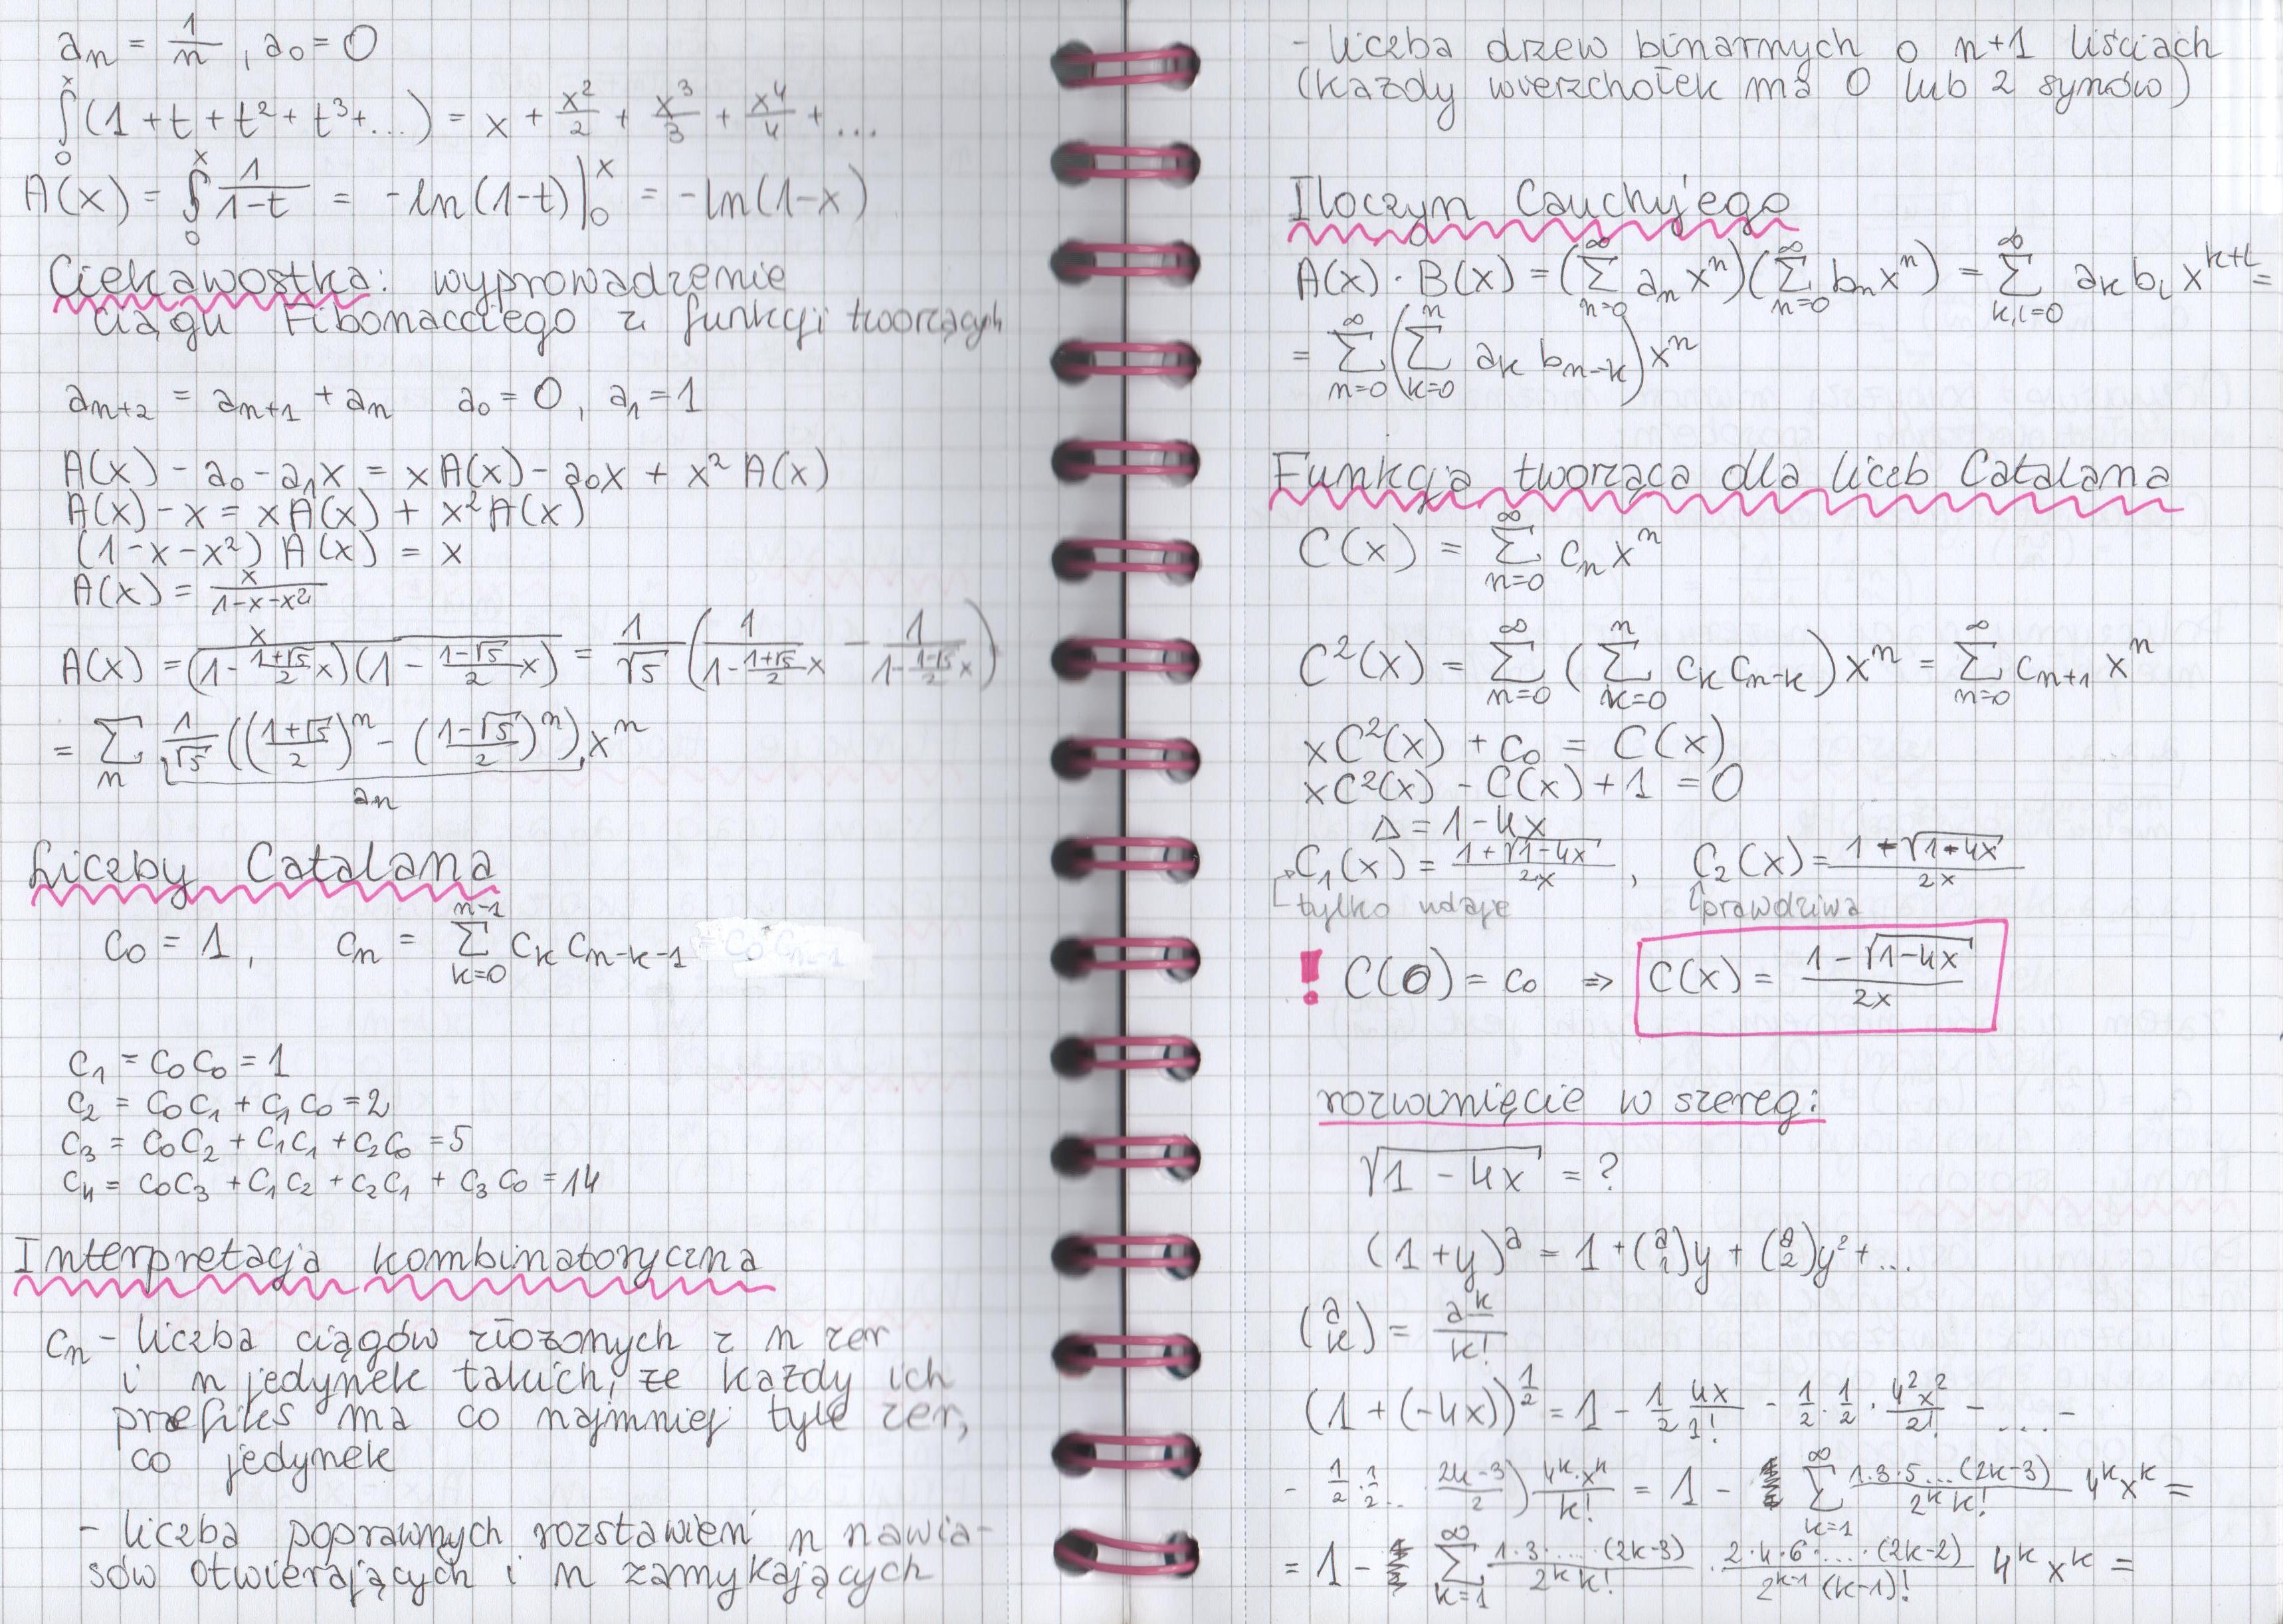 aₙ = 1/n , a₀ = 0
∫₀ˣ (1 + t + t² + t³ + ...) = x + x²/2 + x³/3 + x⁴/4 + ...
A(x) = ∫₀ˣ 1/(1-t) = -ln(1-t)|₀ˣ = -ln(1-x)
Ciekawostka: wyprowadzenie
ciągu Fibonacciego z funkcji tworzących
aₙ₊₂ = aₙ₊₁ + aₙ   a₀ = 0, a₁ = 1
A(x) - a₀ - a₁x = xA(x) - a₀x + x²A(x)
A(x) - x = xA(x) + x²A(x)
(1-x-x²) A(x) = x
A(x) = x/(1-x-x²)
A(x) = x/((1 - (1+√5)/2 x)(1 - (1-√5)/2 x)) = 1/√5 (1/(1 - (1+√5)/2 x) - 1/(1 - (1-√5)/2 x))
= ∑ₙ 1/√5 (((1+√5)/2)ⁿ - ((1-√5)/2)ⁿ) xⁿ
aₙ
Liczby Catalana
c₀ = 1,   cₙ = ∑_{k=0}^{n-1} cₖ cₙ₋ₖ₋₁
c₁ = c₀c₀ = 1
c₂ = c₀c₁ + c₁c₀ = 2
c₃ = c₀c₂ + c₁c₁ + c₂c₀ = 5
c₄ = c₀c₃ + c₁c₂ + c₂c₁ + c₃c₀ = 14
Interpretacja kombinatoryczna
cₙ - liczba ciągów złożonych z n zer
i n jedynek takich, że każdy ich
prefiks ma co najmniej tyle zer,
co jedynek
- liczba poprawnych rozstawień n nawia-
sów otwierających i n zamykających
- liczba drzew binarnych o n+1 liściach
(każdy wierzchołek ma 0 lub 2 synów)
Iloczyn Cauchy'ego
A(x) · B(x) = (∑_{n=0}^{∞} aₙxⁿ)(∑_{n=0}^{∞} bₙxⁿ) = ∑_{k,l=0}^{∞} aₖ bₗ x^{k+l} =
= ∑_{n=0}^{∞} (∑_{k=0}^{n} aₖ bₙ₋ₖ) xⁿ
Funkcja tworząca dla liczb Catalana
C(x) = ∑_{n=0}^{∞} cₙxⁿ
C²(x) = ∑_{n=0}^{∞} (∑_{k=0}^{n} cₖcₙ₋ₖ) xⁿ = ∑_{n=0}^{∞} cₙ₊₁ xⁿ
xC²(x) + c₀ = C(x)
xC²(x) - C(x) + 1 = 0
Δ = 1 - 4x
C₁(x) = (1+√(1-4x))/2x ,   C₂(x) = (1-√(1-4x))/2x
tylko udaje   prawdziwa
! C(0) = c₀ ⇒ C(x) = (1-√(1-4x))/2x
rozwinięcie w szereg:
√(1 - 4x) = ?
(1+y)ᵃ = 1 + (a 1)y + (a 2)y² + ...
(a k) = a^{\underline{k}}/k!
(1 + (-4x))^{1/2} = 1 - 1/2 4x/1! - 1/2 · 1/2 · 4²x²/2! - .... -
- 1/2 · 1/2 ... (2k-3)/2) 4ᵏ·xᵏ/k! = 1 - ∑_{k=1}^{∞} 1·3·5...(2k-3)/(2ᵏ k!) 4ᵏxᵏ =
= 1 - ∑_{k=1}^{∞} 1·3·...·(2k-3)/(2ᵏ k!) · 2·4·6·...·(2k-2)/(2^{k-1} (k-1)!) 4ᵏ xᵏ =